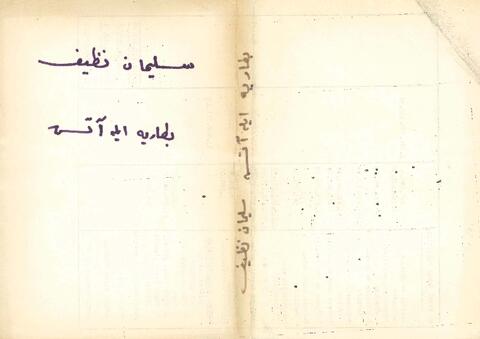 سليمان نظيف
بطاريه ايله آتش
بطاريه ايله آتش سليمان نظيف